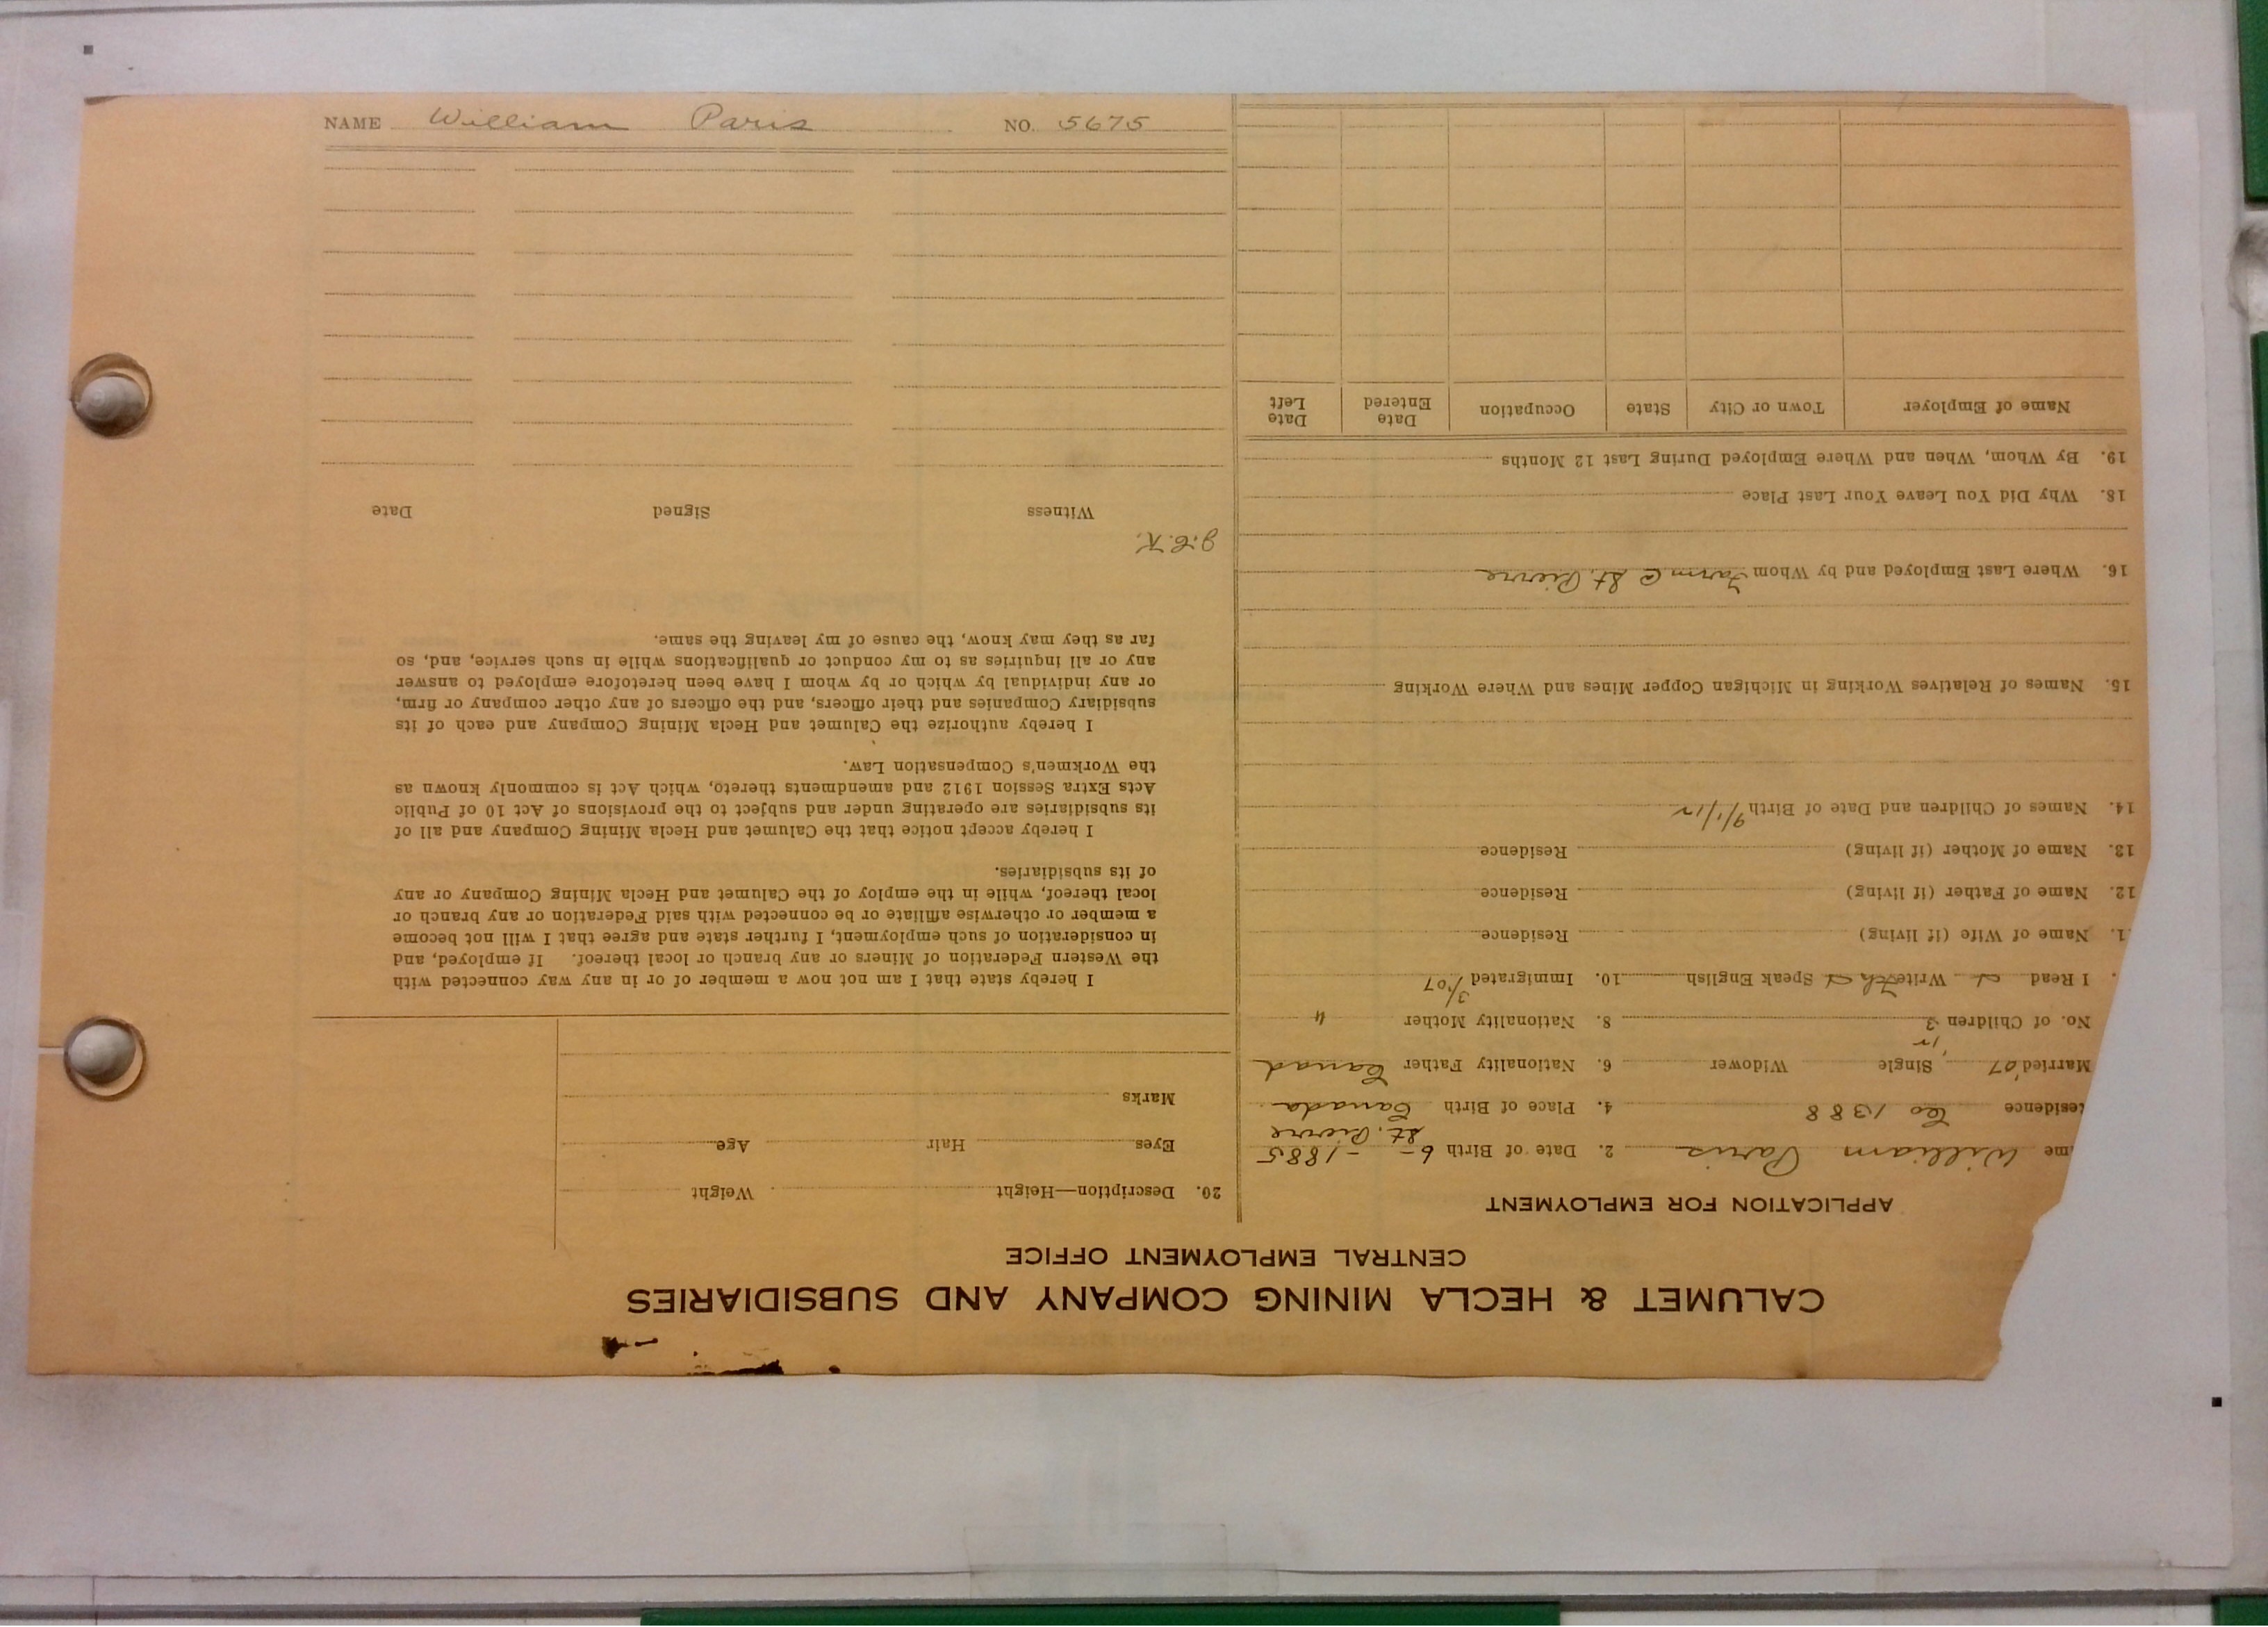 CALUMET & HECLA MINING COMPANY AND SUBSIDIARIES
CENTRAL EMPLOYMENT OFFICE
APPLICATION FOR EMPLOYMENT
me William Paris 2. Date of Birth 6 - - 1885
esidence Co 1388 4. Place of Birth St. Pierre Canada
Married '07 Single Widower 6. Nationality Father Canad
No. of Children 3 8. Nationality Mother "
I Read Write Speak English 10. Immigrated 3/'07
1. Name of Wife (if living) Residence
12. Name of Father (if living) Residence
13. Name of Mother (if living) Residence
14. Names of Children and Date of Birth
15. Names of Relatives Working in Michigan Copper Mines and Where Working
16. Where Last Employed and by Whom Farm @ St. Pierre
18. Why Did You Leave Your Last Place
19. By Whom, When and Where Employed During Last 12 Months
Name of Employer Town or City State Occupation Date Entered Date Left
20. Description—Height Weight
Eyes Hair Age
Marks
I hereby state that I am not now a member of or in any way connected with
the Western Federation of Miners or any branch or local thereof. If employed, and
in consideration of such employment, I further state and agree that I will not become
a member or otherwise affiliate or be connected with said Federation or any branch or
local thereof, while in the employ of the Calumet and Hecla Mining Company or any
of its subsidiaries.
I hereby accept notice that the Calumet and Hecla Mining Company and all of
its subsidiaries are operating under and subject to the provisions of Act 10 of Public
Acts Extra Session 1912 and amendments thereto, which Act is commonly known as
the Workmen's Compensation Law.
I hereby authorize the Calumet and Hecla Mining Company and each of its
subsidiary Companies and their officers, and the officers of any other company or firm,
or any individual by which or by whom I have been heretofore employed to answer
any or all inquiries as to my conduct or qualifications while in such service, and, so
far as they may know, the cause of my leaving the same.
J.C.K.
Witness Signed Date
NAME William Paris NO. 5675